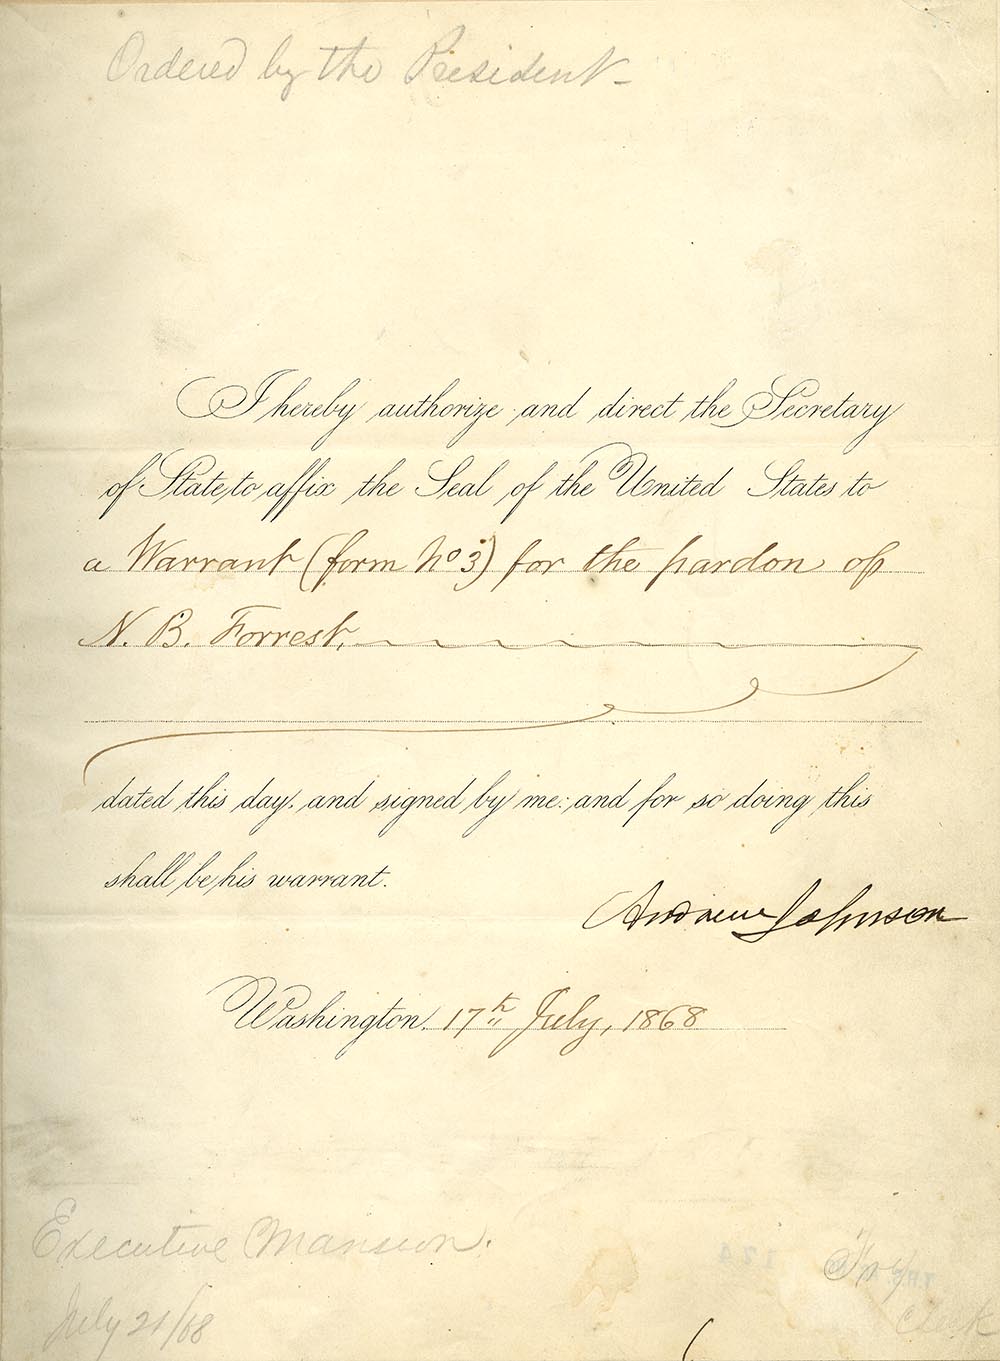 Ordered by the President -
I hereby authorize and direct the Secretary
of State to affix the Seal of the United States to
a Warrant (form No 3) for the pardon of
N. B. Forrest,
dated this day, and signed by me: and for so doing this
shall be his warrant.
Andrew Johnson
Washington, 17th July, 1868
Executive Mansion.
July 21/68
Clerk